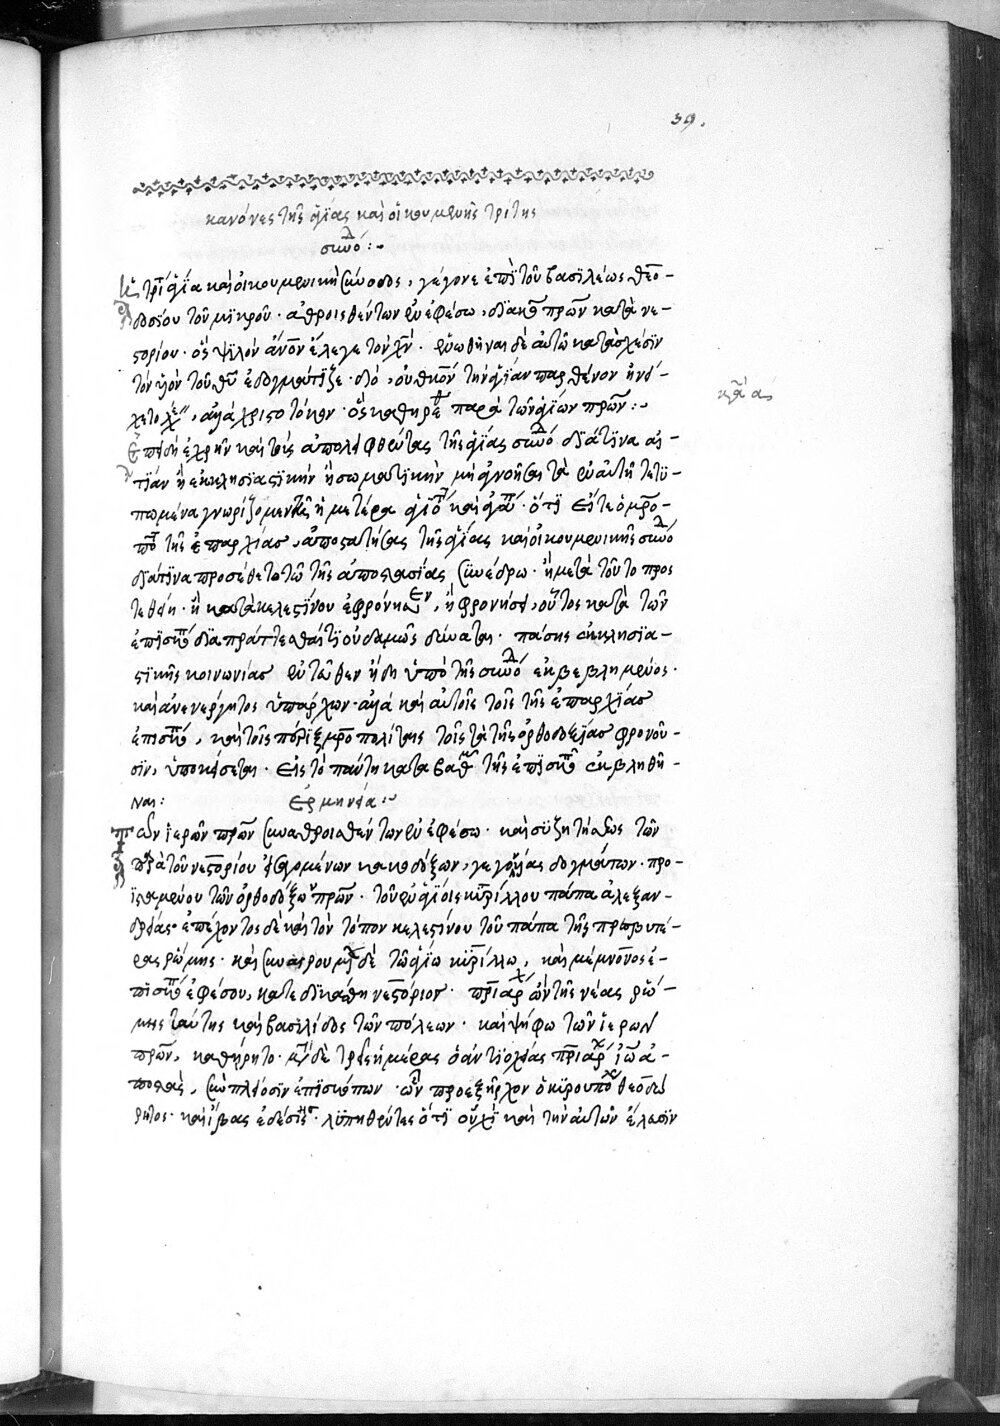 39.
κανόνες τῆς ἁγίας καὶ οἰκουμενικῆς τρίτης
συνόδ :-
Ἡ τρί ἁγία καὶ οἰκουμενικὴ σύνοδος, γέγονε ἐπῒ τοῦ βασιλέως θεο-
δοσίου τοῦ μικροῦ · ἀθροισθέντων ἐν ἐφέσω, διακοσ πρῶν κατὰ νε-
στορίου · ὃς ψιλὸν ἄνον ἔλεγε τὸν χν · ἑνωθῆναι δὲ αὐτῶ κατασχέσϊν
τὸν υἱὸν τοῦ θυ ἐδογμάτϊζε · διὸ, οὐ θκον τὴν ἁγίαν παρθένον ἠνέ-
χετο λέ, ἀλλὰ χριστοτόκον · ὃς καθηρέθ παρὰ τῶν ἁγίων πρων :-
κα α
Ἐπειδὴ ἐχρῆν καὶ τοὺς ἀπολειφθέντας τῆς ἁγίας συνόδ διάτινα αἰ-
τίαν ἢ ἐκκλησϊαστικὴν ἢ σωματϊκὴν μὴ ἀγνοῆσαι τὰ ἐν αὐτῆ τετυ-
πωμένα γνωρίζομεν τῆ ἡμετέρα ἁγιότ καὶ ἀγά · ὅτϊ εἴτε ὁ μρο-
πο τῆς ἐπαρχίας, ἀποστατήσας τῆς ἁγίας καὶ οἰκουμενικῆς συνόδ
διάτϊνα προσέθετο τῶ τῆς ἀποστασίας συνέδρω · ἢ μετὰ τοῦτο προς
τεθείη · ἢ τὰ κελεστίνου ἐφρόνησεν, ἢ φρονήσει, οὗτος κατὰ τῶν
ἐπισκ διαπράττεσθαί τϊ οὐδαμῶς δύναται · πάσης ἐκκλησϊα-
στϊκῆς κοινωνίας ἐντεῦθεν ἤδη ὑπὸ τῆς συνόδ ἐκβεβλημένος ·
καὶ ἀνενέργητος ὑπάρχων · ἀλλὰ καὶ αὐτοῖς τοῖς τῆς ἐπαρχϊας
ἐπισκ, καὶ τοῖς πέριξ μροπολίταις τοῖς τὰ τῆς ὀρθοδοξίας φρονοῦ-
σϊν, ὑποκείσεται · εἰς τὸ πάντη καὶ τοῦ βαθμ τῆς ἐπισκ ἐκβληθῆ-
ναι : Ἑρμηνεία :-
Τῶν ἱερῶν πρων συναθροισθέντων ἐν ἐφέσω · καὶ συζητήσεως τῶν
παρὰ τοῦ νεστορίου κακοδόξων, γεγονυίας δογμάτων · προ-
ϊσταμένου τῶν ὀρθοδόξων πρων · τοῦ ἐν ἁγίοις κυρίλλου πάπα ἀλεξαν-
δρείας · ἐπέχοντος δὲ καὶ τὸν τόπον κελεστίνου τοῦ πάπα τῆς πρεσβυτέ-
ρας ῥώμης · καὶ συναιρουμ δὲ τῶ ἁγίω κυρίλλω, καὶ μέμνονος ἐ-
πισκ ἐφέσου, κατεδικάσθη νεστόριον · πριάρχ ὢν τῆς νέας ῥώ-
μης ταύτης καὶ βασιλίδος τῶν πόλεων · καὶ ψήφω τῶν ἱερων
πρων, καθήρητο · μετ δὲ τρεῖς ἡμέρας ὁ ἀντϊοχείας πριάρχ ἰω ἀ-
ποστὰς, σὺν πλείοσϊν ἐπϊσκόπων · ὧν προεξῆρχον ὁ κύρου πο θεοδώ
ρητος · καὶ ἴβας ἐδέσης · λϋπηθέντες ὅτϊ οὐχὶ καὶ τὴν αὐτῶν ἔλευσϊν